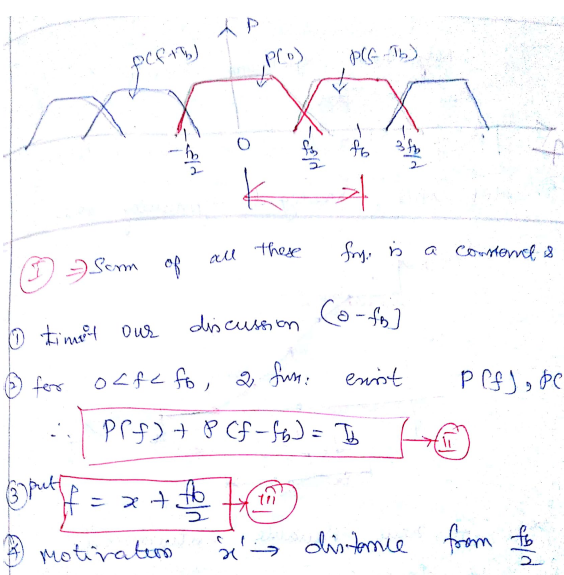 P
P(f+Tb) P(0) P(f-Tb)
-fb/2 0 fb/2 fb 3fb/2 f
I ⇒ Sum of all these fry. is a constant &
① limit our discussion (0-fb]
② for 0<f<fb, 2 fun: exist P(f), P(
∴ P(f) + P(f-fb) = Tb → II
③ put f = x + fb/2 → III
④ motivation 'x' → distance from fb/2